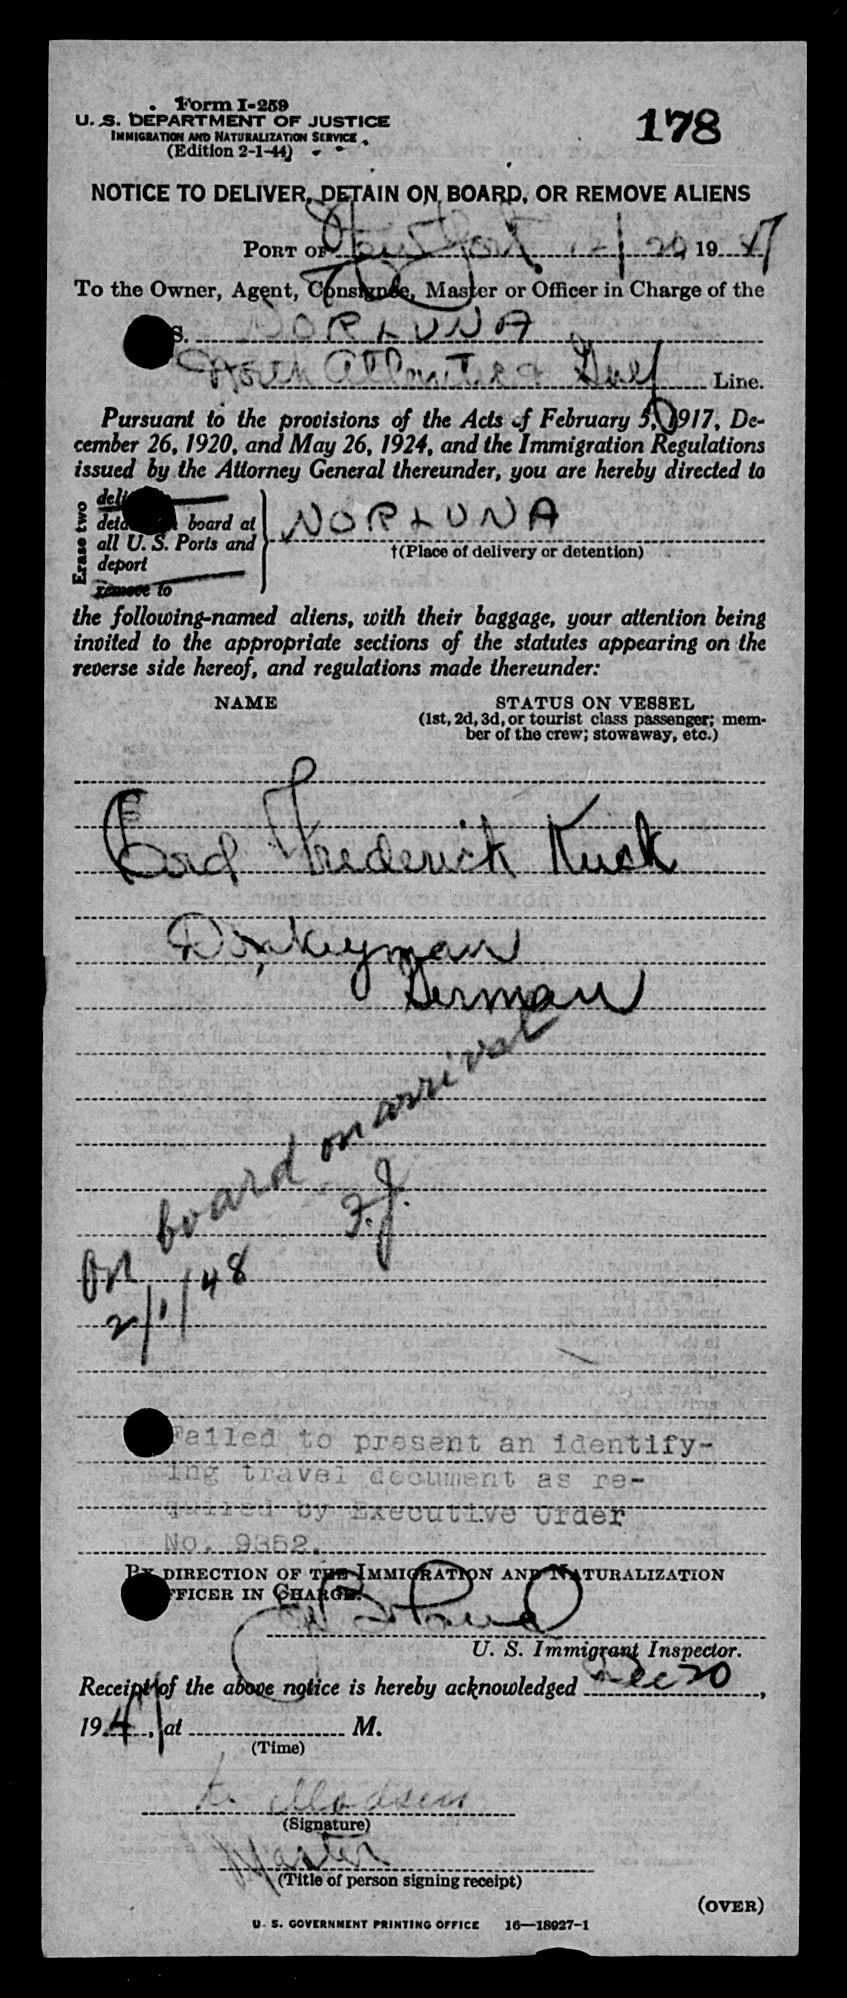 Form I-259
U. S. DEPARTMENT OF JUSTICE
IMMIGRATION AND NATURALIZATION SERVICE
(Edition 2-1-44)
178
NOTICE TO DELIVER, DETAIN ON BOARD, OR REMOVE ALIENS
PORT OF New York, 12/20, 1947
To the Owner, Agent, Consignee, Master or Officer in Charge of the
S. NORLUNA
North Atlantic & Gulf Line.
Pursuant to the provisions of the Acts of February 5, 1917, De-
cember 26, 1920, and May 26, 1924, and the Immigration Regulations
issued by the Attorney General thereunder, you are hereby directed to
Erase two
deli
deta board at
all U. S. Ports and
deport
remove to
NORLUNA
†(Place of delivery or detention)
the following-named aliens, with their baggage, your attention being
invited to the appropriate sections of the statutes appearing on the
reverse side hereof, and regulations made thereunder:
NAME STATUS ON VESSEL
(1st, 2d, 3d, or tourist class passenger; mem-
ber of the crew; stowaway, etc.)
Frederick Kuck
Donkeyman
German
On board on arrival
F.J.
2/1/48
Failed to present an identify-
ing travel document as re-
quired by Executive Order
No. 9352.
BY DIRECTION OF THE IMMIGRATION AND NATURALIZATION
FFICER IN CHARGE:
U. S. Immigrant Inspector.
Receipt of the above notice is hereby acknowledged Dec 20,
1947, at M.
(Time)
Madsen
(Signature)
Master
(Title of person signing receipt)
(OVER)
U. S. GOVERNMENT PRINTING OFFICE 16—18927-1